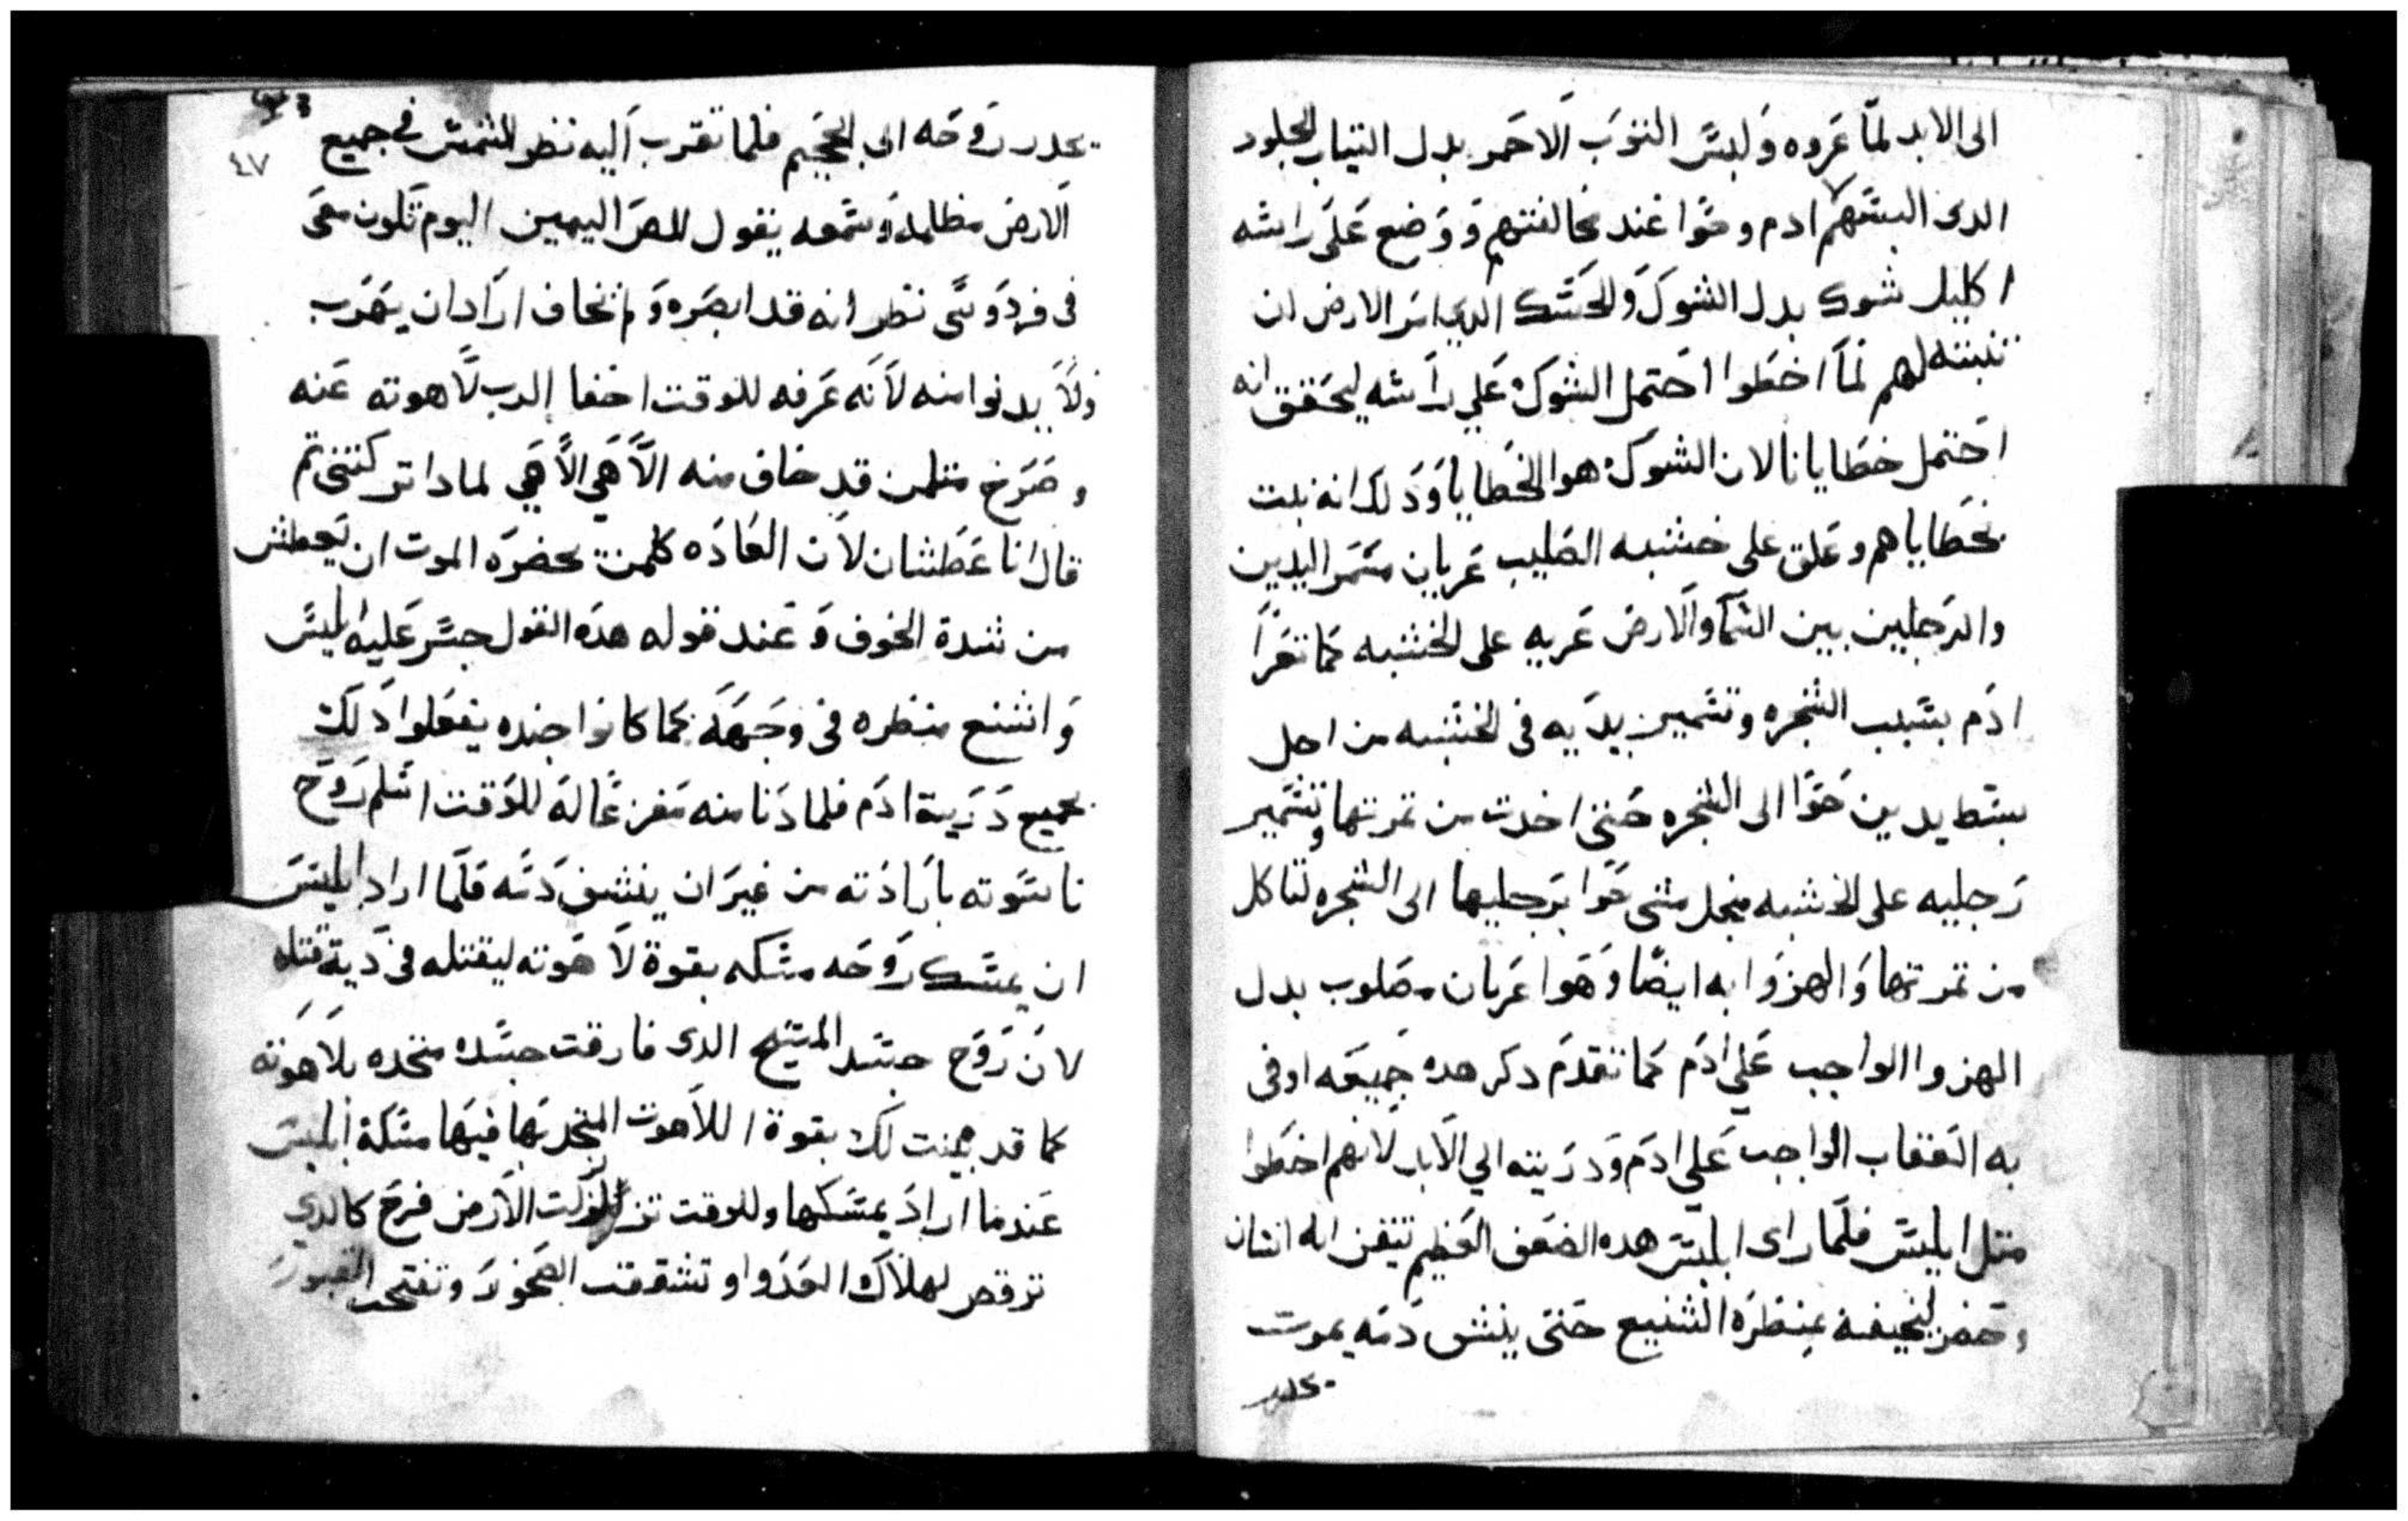 الى الابد لمّا عَروه وَلبسَ التوَب الاحمر بدل التياب الجلود
الدى البسَهم ادم وحَوا عَند مخالفتهم وَوَضع عَلَى راسَه
اكليل شوك بدل الشوكَ وَالحَسَك الدي امرَ الارض ان
تنبته لهم لمَا اخطوا احَتمل الشوكَ عَلي راَسَه ليحَقق انه
احتمل خطايانا لان الشوكَ هو الخَطايا وَدَلك انه نبت
بخَطاياهم وعَلق على خشبه الصَليب عَريان مسَمَر اليدين
والرَجلين بين السَما وَالارضَ عَريه على الخشبه كما تعَرَا
ادَم بسَبب الشجره وتسَمير يدَيه فى الخشبه من اجل
بسَط يدين حَوَا الى الشجره حَتى اخدت من تمرتها وتسَمير
رَجليه على الخشبه منجل مشى حَوا برَجليها الى الشجره لتاكل
من تمرتها وَالهزوَا به ايضَا وَهَوا عَريان مصَلوب بدل
الهزوا الواجب عَلي ادَم كما تقدمَ دكر هده جَميعَه اوفى
به العَقاب الواجب عَلي ادَم وَدرَيته الي الاَبد لاَنهم اخطوا
متل ابليسَ فلَما راى ابليسَ هده الضعَف العَظيم تيقن انه انسَان
وحضر ليخيفه بمنظرَه الشنيع حَتى ينشف دَمَه يموت
يحدر
٤٧
يحدر رَوحَه الى الجحَيم فلما تقرب اَليه نظر الشمسَ فى جميع
اَلارضَ مظلمه وَسَمعه يقول للصَ اليمين اليوم تَكون معَى
فى فردوسَى نظر انه قد ابصَره وَ خاف ارَاد ان يهَرب
وَلاَ يدنوا منه لاَنه عَرفه للوقت اخفا الرب لاَهوته عَنه
وصَرَخ متلمن قد خاف منه الاَهَي الاَهَي لمادا تركتنى تم
قال انا عَطَشان لاَن العَادَه كلمن بحضرَه الموت ان يَعطش
من شدة الخوف وَعَند قوله هدَه القول جسَر عَليه ابليسَ
وَاشنع منظره فى وجَهَه كما كانوا جنده يفعَلوا دَلَك
بجميع دَرَية ادَم فلما دَنا منه مَفزعًا لهَ للوَقت اسَلم رَوَح
ناسَوته باَرادَته من غيرَ ان ينشف دَمَه فلَما اراد ابليسَ
ان يمسَك رَوَحَه مسَكه بقوة لاَهَوته ليقتله فى دَية قتله
لاَن رَوَح جسَد المسَيَح الدى فارقت جسَده متحده بلاَهَوته
كما قد بينت لك بقوة اللاَهوت المتحد بَها فيهَا مسَكة ابليسَ
عَندما ارادَ يمسَكها وللوقت تزلزلت الاَرَض فرحَ كالدي
ترقص لهلاَك العَدَوا وتشققت الصَخورَ وتفتحت القبورَ